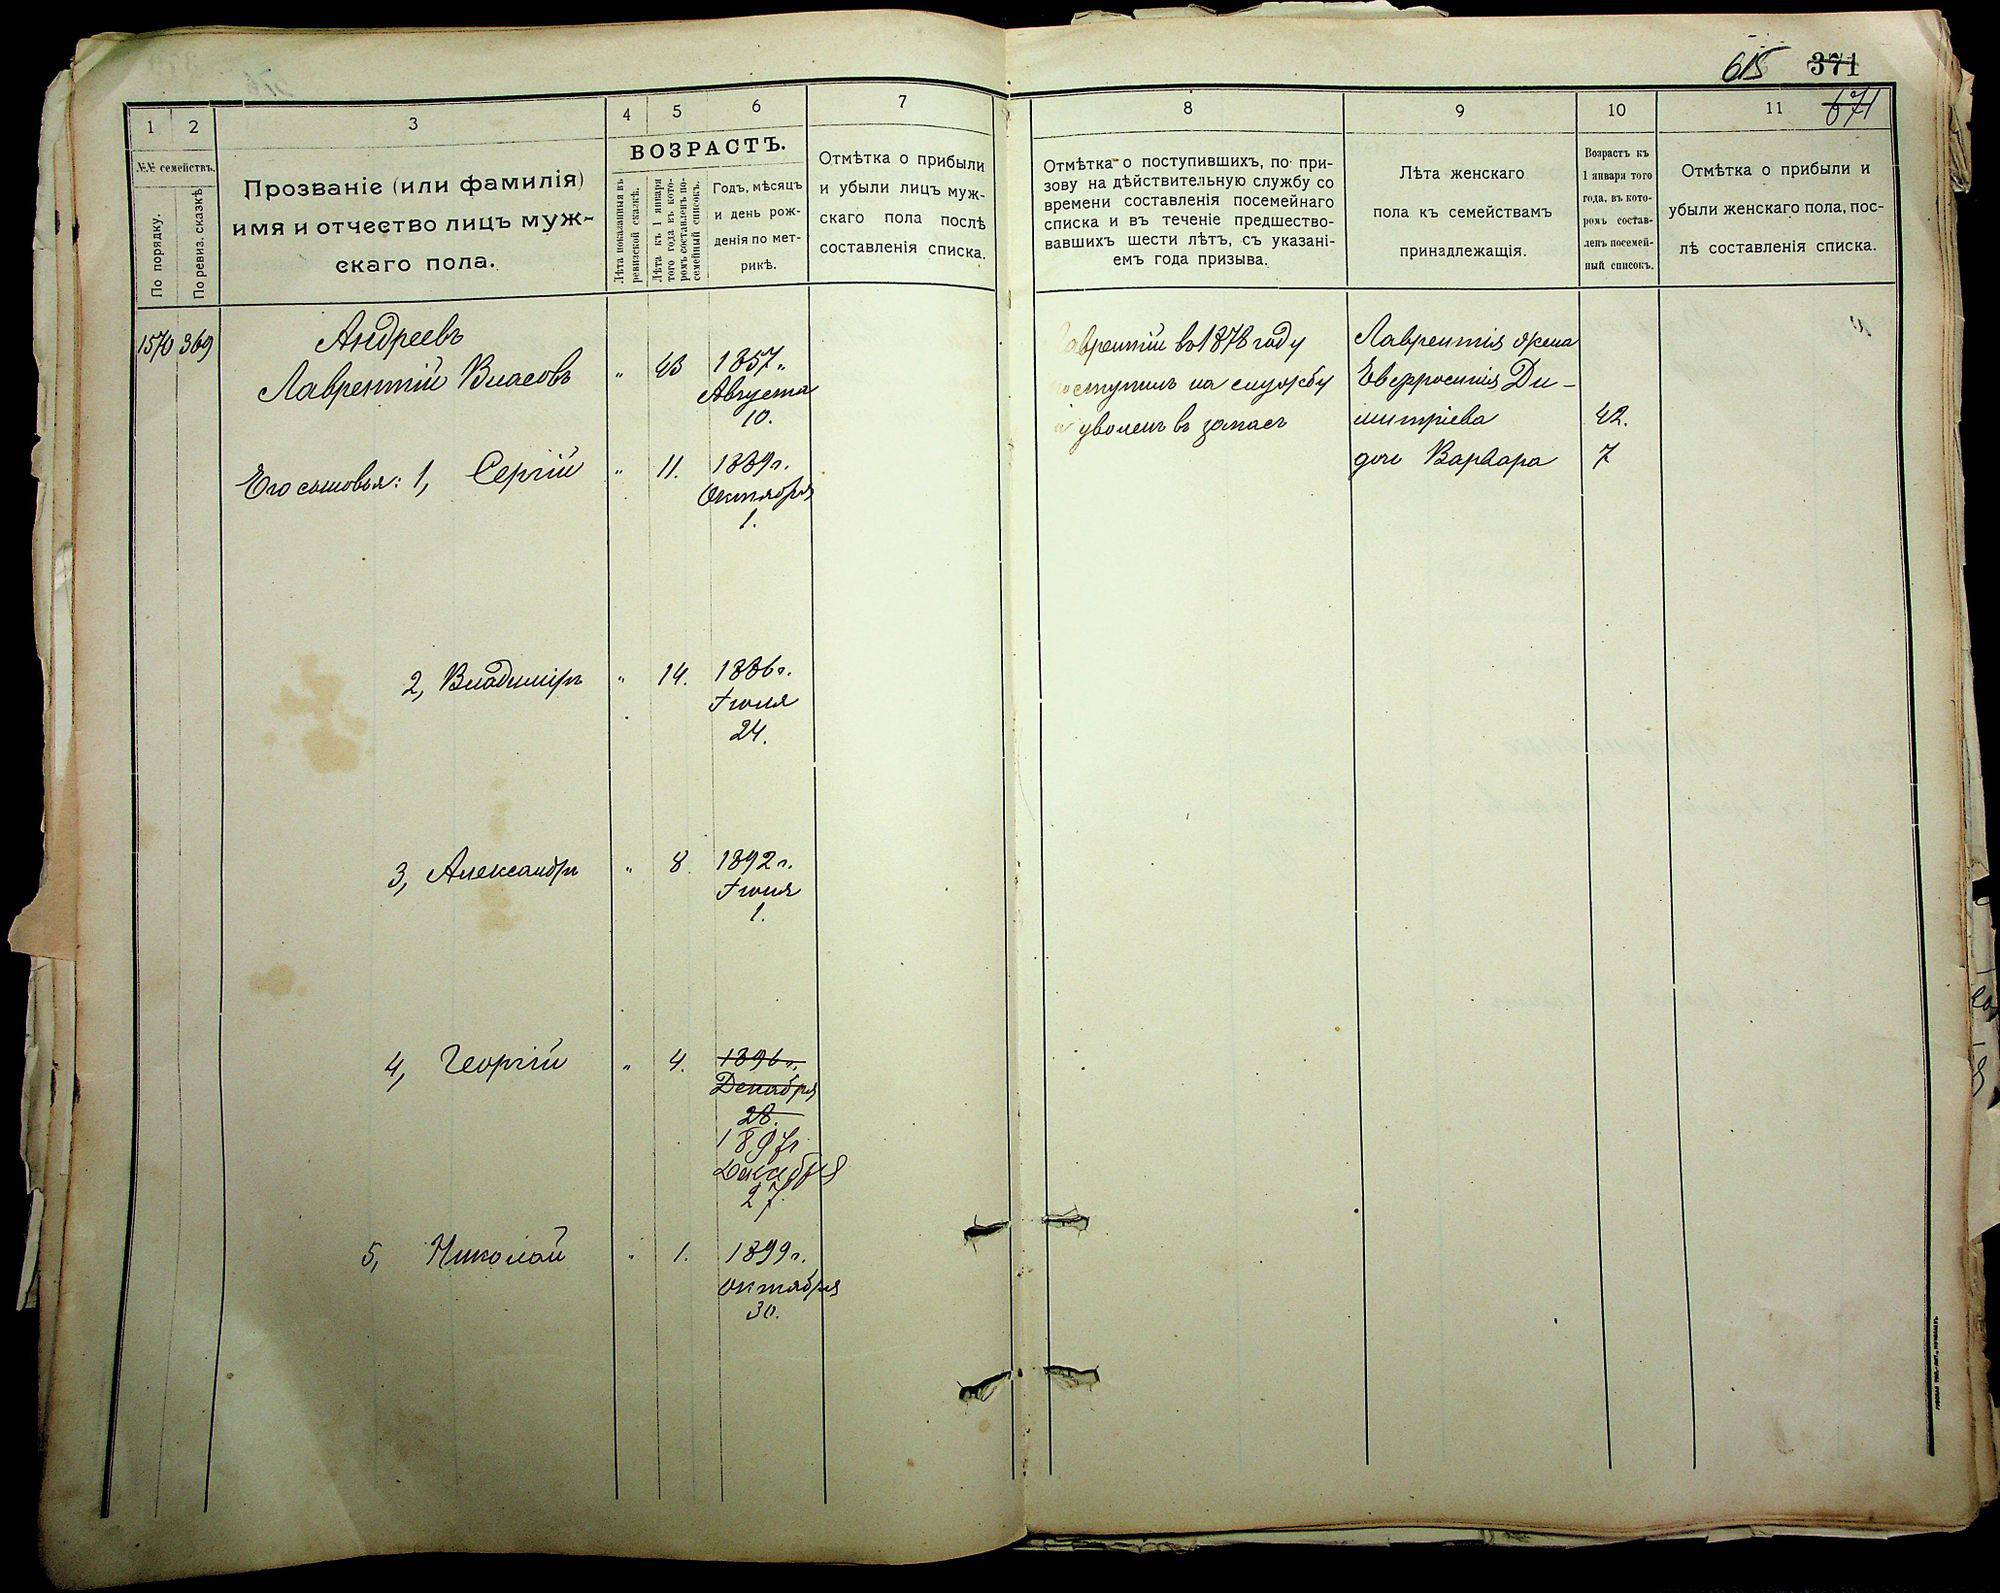 615 371
671
1 2 3 4 5 6 7
№№ семействъ.
По порядку.
По ревиз. сказкѣ
Прозваніе (или фамилія)
имя и отчество лицъ муж-
скаго пола.
ВОЗРАСТЪ.
Лѣта показанныя въ
ревизской сказкѣ.
Лѣта къ 1 января
того года въ кото-
ромъ составленъ по-
семейный списокъ.
Годъ, мѣсяцъ
и день рож-
денія по мет-
рикѣ.
Отмѣтка о прибыли
и убыли лицъ муж-
скаго пола послѣ
составленія списка.
8 9 10 11
Отмѣтка о поступившихъ, по при-
зову на дѣйствительную службу со
времени составленія посемейнаго
списка и въ теченіе предшество-
вавшихъ шести лѣтъ, съ указані-
емъ года призыва.
Лѣта женскаго
пола къ семействамъ
принадлежащія.
Возрастъ къ
1 января того
года, въ кото-
ромъ состав-
ленъ посемей-
ный списокъ.
Отмѣтка о прибыли и
убыли женскаго пола, пос-
лѣ составленія списка.
1570 369 Андреевъ
Лаврентій Власовъ „ 43 1857 „
Августа
10.
Его сыновья: 1, Сергій „ 11. 1889 г.
Октября
1.
2, Владиміръ „ 14. 1886 г.
Іюля
24.
3, Александръ „ 8. 1892 г.
Іюля
1.
4, Георгій „ 4. 1896 г.
Декабря
28.
1897г
Декабря
27
5, Николай „ 1. 1899 г.
Октября
30.
Лаврентій въ 1878 году
поступилъ на службу
и уволенъ въ запасъ
Лаврентія жена
Евфросинія Ди-
митріева 42.
дочь Варвара 7